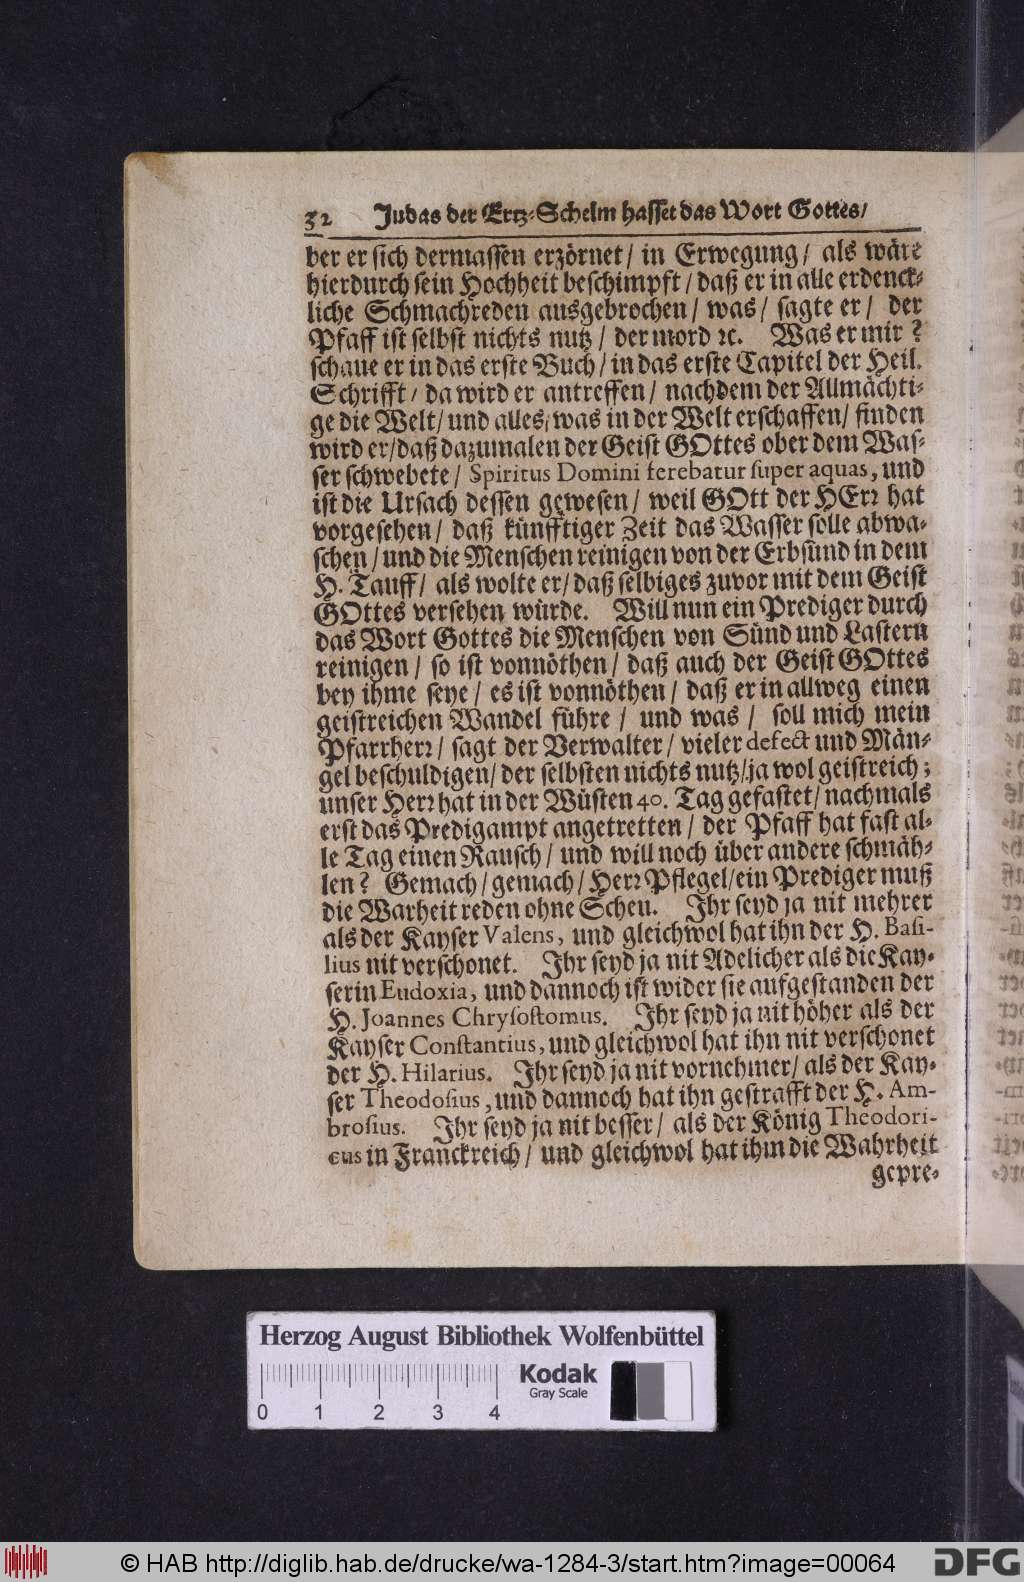 32 Judas der Ertz-Schelm hasset das Wort Gottes/
ber er sich dermassen erzörnet / in Erwegung / als wäre
hierdurch sein Hochheit beschimpft / daß er in alle erdenck-
liche Schmachreden ausgebrochen / was / sagte er / der
Pfaff ist selbst nichts nutz / der mord ꝛc. Was er mir ?
schaue er in das erste Buch / in das erste Capitel der Heil.
Schrifft / da wird er antreffen / nachdem der Allmächti-
ge die Welt / und alles / was in der Welt erschaffen / finden
wird er / daß dazumalen der Geist GOttes ober dem Was-
ser schwebete / Spiritus Domini ferebatur super aquas, und
ist die Ursach dessen gewesen / weil GOtt der HErꝛ hat
vorgesehen / daß künfftiger Zeit das Wasser solle abwa-
schen / und die Menschen reinigen von der Erbsünd in dem
H. Tauff / als wolte er / daß selbiges zuvor mit dem Geist
GOttes versehen würde. Will nun ein Prediger durch
das Wort Gottes die Menschen von Sünd und Lastern
reinigen / so ist vonnöthen / daß auch der Geist GOttes
bey ihme seye / es ist vonnöthen / daß er in allweg einen
geistreichen Wandel führe / und was / soll mich mein
Pfarrherꝛ / sagt der Verwalter / vieler defect und Män-
gel beschuldigen / der selbsten nichts nutz / ja wol geistreich ;
unser Herꝛ hat in der Wüsten 40. Tag gefastet / nachmals
erst das Predigampt angetretten / der Pfaff hat fast al-
le Tag einen Rausch / und will noch über andere schmäh-
len ? Gemach / gemach / Herꝛ Pflegel / ein Prediger muß
die Warheit reden ohne Scheu. Ihr seyd ja nit mehrer
als der Kayser Valens, und gleichwol hat ihn der H. Basi-
lius nit verschonet. Ihr seyd ja nit Adelicher als die Kay-
serin Eudoxia, und dannoch ist wider sie aufgestanden der
H. Joannes Chrysostomus. Ihr seyd ja nit höher als der
Kayser Constantius, und gleichwol hat ihn nit verschonet
der H. Hilarius. Ihr seyd ja nit vornehmer / als der Kay-
ser Theodosius, und dannoch hat ihn gestrafft der H. Am-
brosius. Ihr seyd ja nit besser / als der König Theodori-
cus in Franckreich / und gleichwol hat ihm die Wahrheit
gepre-
Herzog August Bibliothek Wolfenbüttel
Kodak
Gray Scale
0 1 2 3 4
© HAB http://diglib.hab.de/drucke/wa-1284-3/start.htm?image=00064
DFG